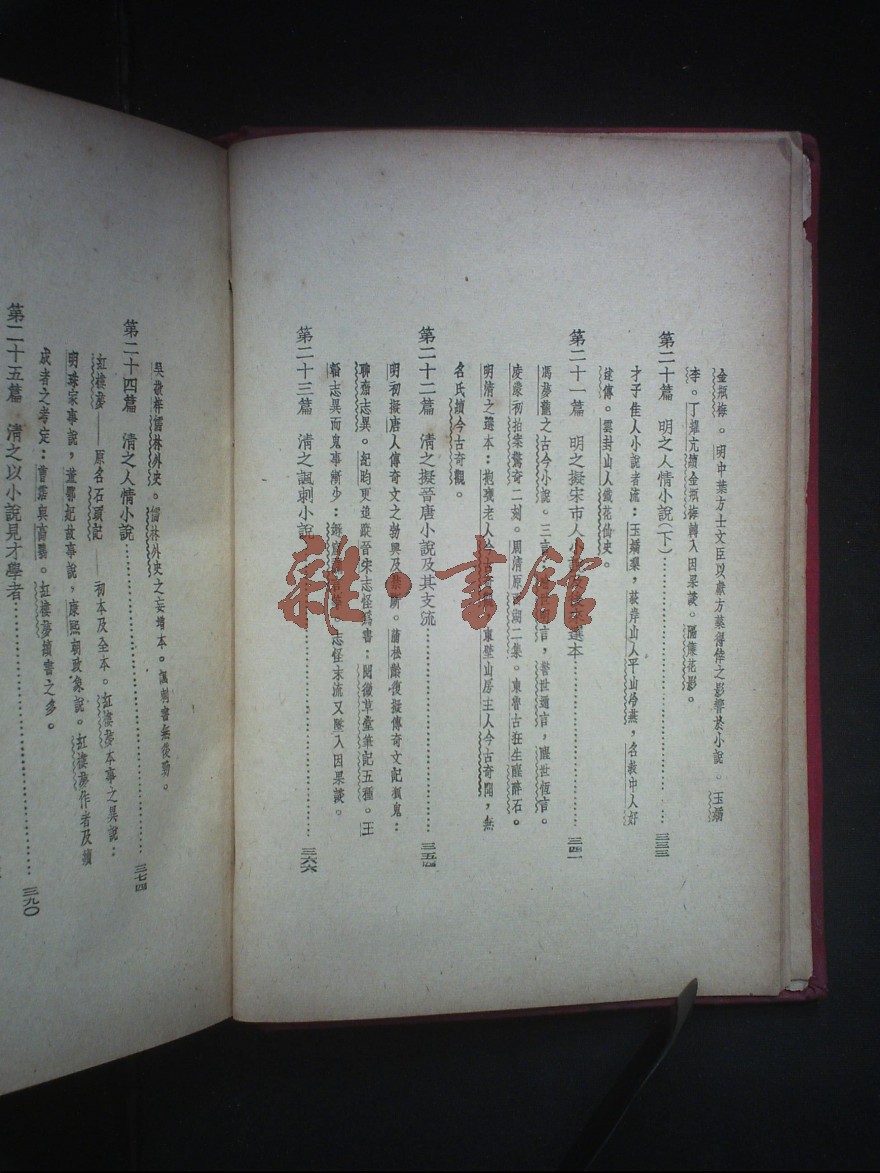 金瓶梅。明中葉方士文臣以獻方藥得倖之影響於小說。玉嬌
李。丁耀亢續金瓶梅轉入因果談。隔簾花影。
第二十篇 明之人情小說(下)……三三三
才子佳人小說者流：玉嬌梨，荻岸山人平山冷燕，名教中人好
逑傳。雲封山人鐵花仙史。
第二十一篇 明之擬宋市人小說及後來選本……三四二
馮夢龍之古今小說。三言：言，警世通言，醒世恆言。
凌濛初拍案驚奇二刻。周清原西湖二集。東魯古狂生醒醉石。
明清之選本：抱甕老人今古奇觀，東壁山房主人今古奇聞，無
名氏續今古奇觀。
第二十二篇 清之擬晉唐小說及其支流……三五四
明初擬唐人傳奇文之勃興及禁斷。蒲松齡復擬傳奇文記狐鬼：
聊齋志異。紀昀更追蹤晉宋志怪爲書：閱微草堂筆記五種。王
韜志異而鬼事漸少：志怪末流又墜入因果談。
第二十三篇 清之諷刺小說……三六六
吳敬梓儒林外史。儒林外史之妄增本。諷刺書無後勁。
第二十四篇 清之人情小說……三七四
紅樓夢——原名石頭記——初本及全本。紅樓夢本事之異說：
明珠家事說，董鄂妃故事說，康熙朝政象說。紅樓夢作者及續
成者之考定：曹霑與高鶚。紅樓夢續書之多。
第二十五篇 清之以小說見才學者……三九〇
雜·書館